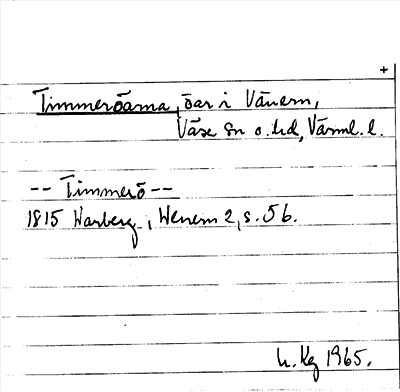 +
Timmeröarna, öar i Vänern,
Väse sn o. hd, Värml. l.
-- Timmerö --
1815 Warberg, Wenern 2, s. 56.
1965.